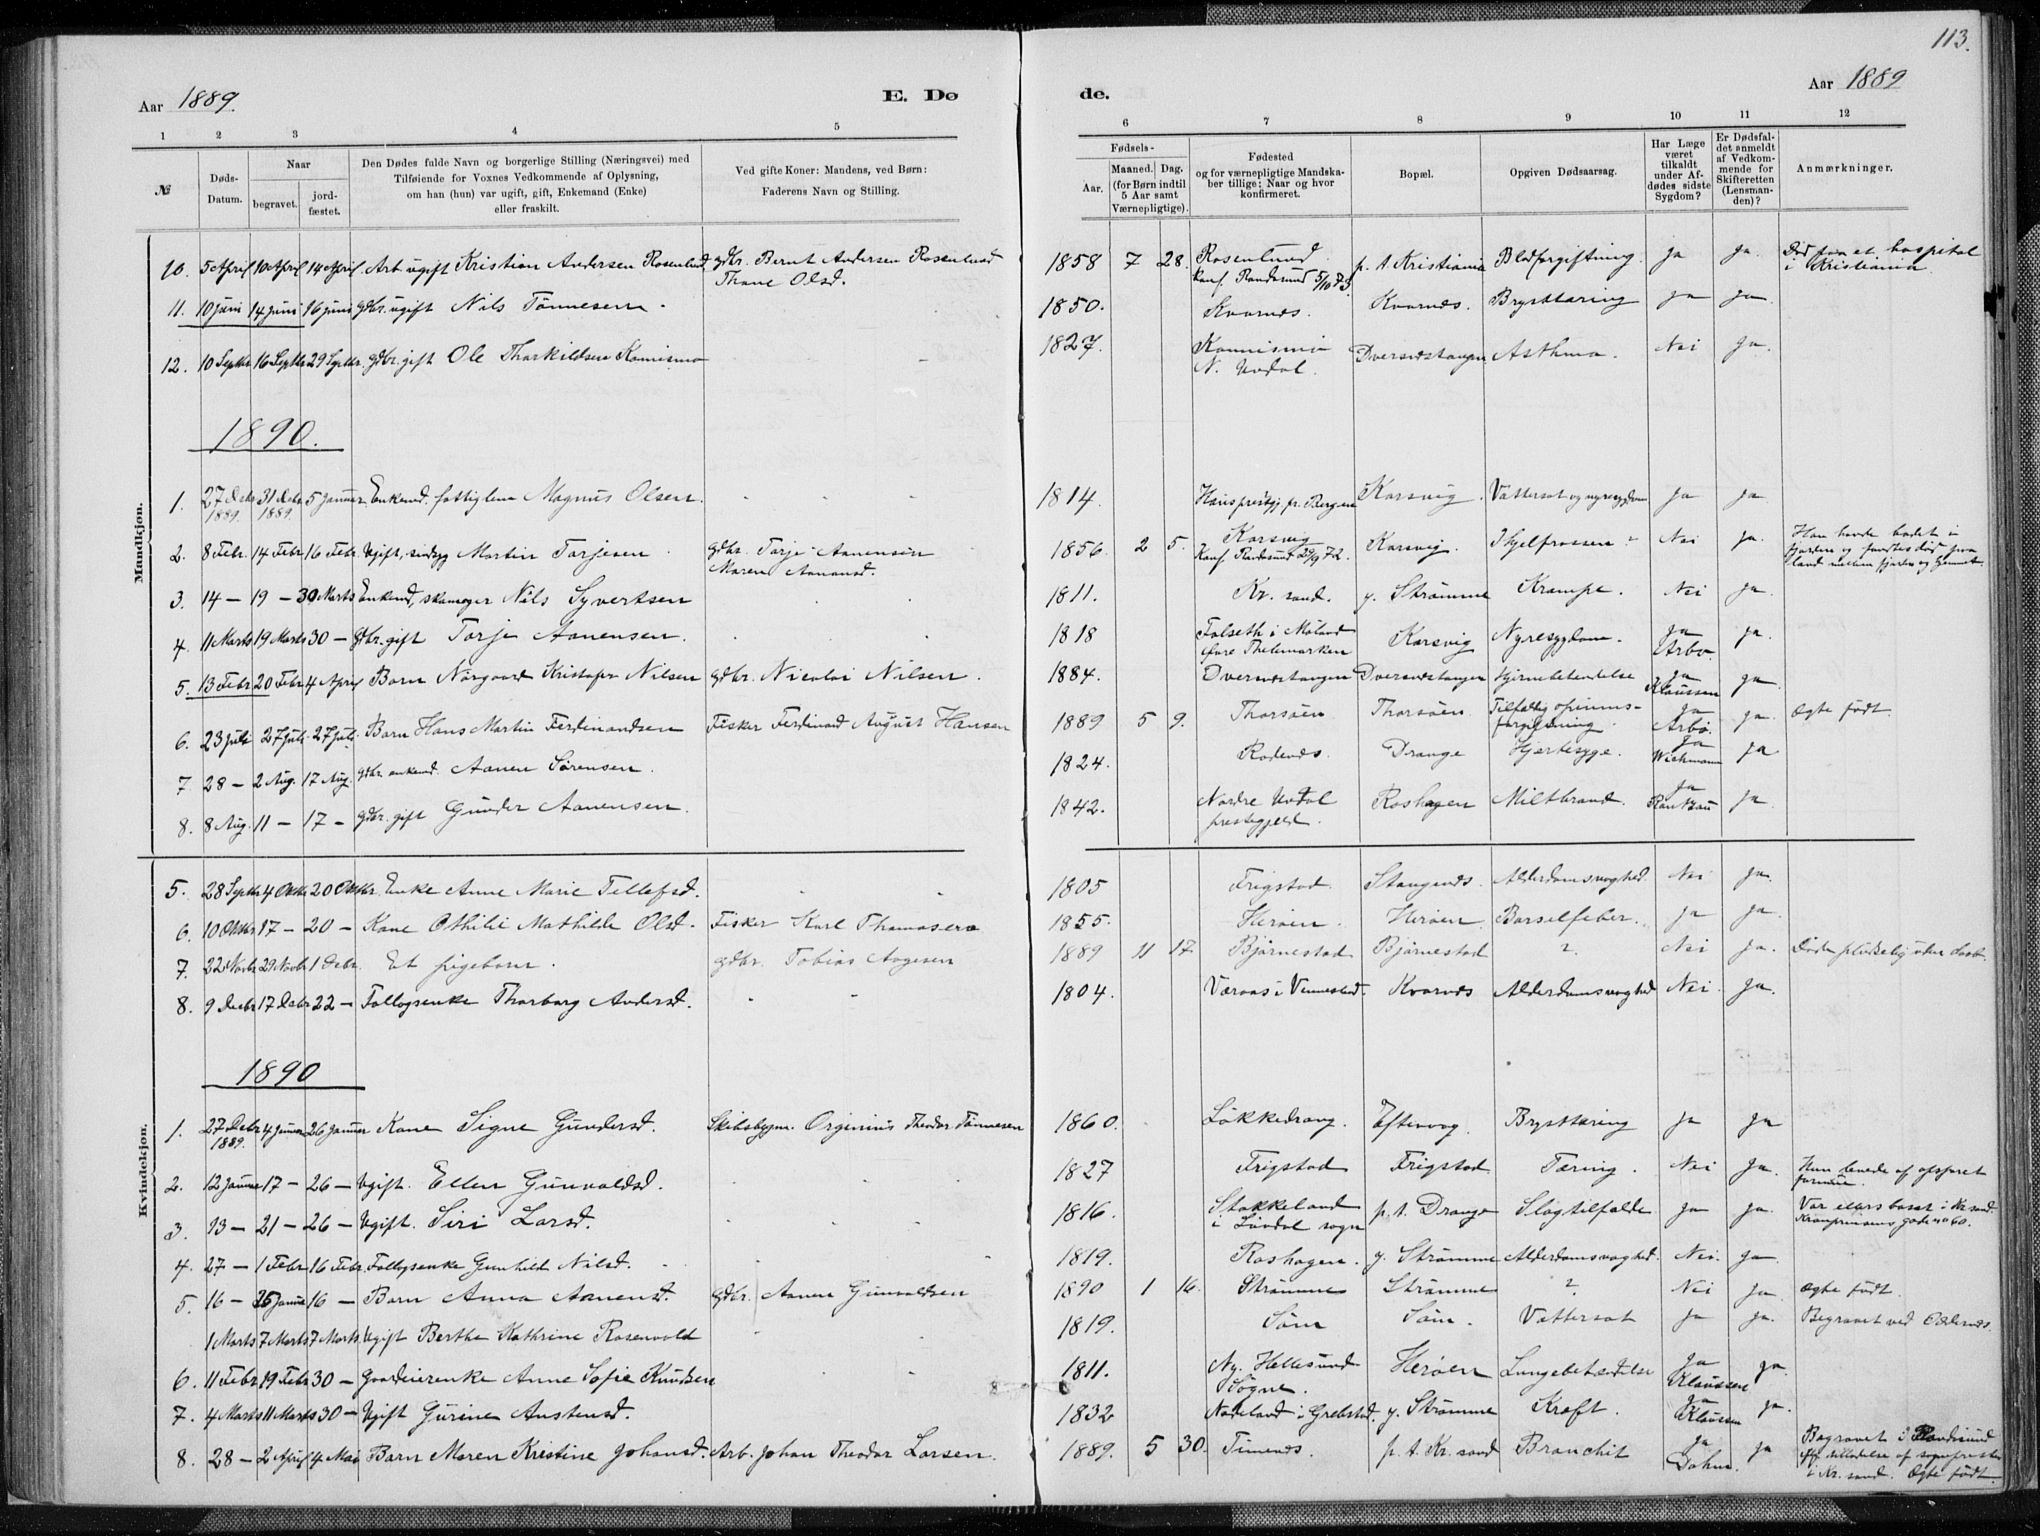 113.
Aar 1889. E. Dø de. Aar 1889
1 2 3 4 5 6 7 8 9 10 11 12
№ Døds-Datum. Naar begravet. jord-fæstet. Den Dødes fulde Navn og borgerlige Stilling (Næringsvei) med Tilføiende for Voxnes Vedkommende af Oplysning, om han (hun) var ugift, gift, Enkemand (Enke) eller fraskilt. Ved gifte Koner: Mandens, ved Børn: Faderens Navn og Stilling. Fødsels- Aar. Maaned. Dag. (for Børn indtil 5 Aar samt Værnepligtige). Fødested og for værnepligtige Mandska-ber tillige: Naar og hvor konfirmeret. Bopæl. Opgiven Dødsaarsag. Har Læge været tilkaldt under Af-dødes sidste Sygdom? Er Dødsfal-det anmeldt af Vedkom-mende for Skifteretten (Lensman-den)? Anmærkninger.
Mandkjøn.
10. 5 April 10 April 14 April Arb. ugift Kristian Andersen Rosenlund. gdbr. Bernt Andersen Rosenlund Thone Olsd. 1858 7 28. Rosenlund konf. Randesund 5/10 73. p. t. Kristiania Blodforgiftning. ja ja. Død paa et hospital i Kristiania.
11. 10 juni 14 juni 16 juni gdbr. ugift Nils Tønnesen. 1850. Kvarnes. Kvarnes. Brysttæring ja ja.
12. 10 Septbr 16 Septbr 29 Septbr. gdbr. gift Ole Thorkildsen Kannismo 1827. Kannismo N. Uvdal. Dversnestangen Asthma. Nei ja.
1890.
1. 27 Debr 1889. 31 Debr 1889. 5 januar Enkemd. fattiglem Magnus Olsen. 1814. Hausprestgj. pr. Bergen Korsvig. Vattersot og nyresygdom ja ja
2. 8 Febr. 14 Febr 16 Febr. Ugift, sindsyg Martin Torjesen. gdbr. Torje Aanensen Maren Aanensd. 1856. 2 5. Korsvig Konf. Randesund 29/9 72. Korsvig. Ihjelfrossen? Nei ja. Han havde badet i fjorden og fandtes død paa land mellem fjorden og hjemmet.
3. 14 – 19 – 30 Marts Enkemd, skomager Nils Syvertsen 1811. Kr. sand. g. Strømme Krampe. Nei ja.
4. 11 Marts 19 Marts 30 – gdbr. gift Torje Aanensen. 1818 Falseth i Moland øvre Thelemarken Korsvig Nyresygdom. ja Arbo. ja.
5. 13 Febr 20 Febr 4 April Barn Norgaard Kristofer Nilsen gdbr. Nicolai Nilsen. 1884. Dversnestangen Dversnestangen Hjernebetendelse ja Klaussen ja
6. 23 juli 27 juli 27 juli. Barn Hans Martin Ferdinandsen Fisker Ferdinand August Hansen 1889 5 9. Thorsøen Thorsøen Tilfældig opiums-forgiftning. ja Arbo. ja. Ægte født.
7 28 – 2 Aug. 17 Aug. gdbr. enkemd. Aanen Sørensen. 1824. Rødenes. Drange Hjertesyge. ja Wichmann ja
8. 8 Aug. 11 – 17 – gdbr. gift Gunder Aanensen. 1842. Nordre Uvdal prestegjeld. Roshagen Miltbrand. ja ja.
Kvindekjøn.
5. 28 Septbr 4 Oktbr 20 Oktbr. Enke Anne Marie Tellefsd. 1805 Frigstad. Stangenes. Alderdomssvaghed. Nei ja.
6. 10 Oktbr 17 – 20 – Kone Othilie Mathilde Olsd. Fisker Karl Thomassen 1855. Herøen. Herøen Barselfeber. ja ja.
7. 22 Novbr 29 Novbr 1 Debr. Et pigebarn. gdbr. Tobias Aagesen 1889 11 17. Bjørnestad Bjørnestad ?. Nei ja. Døde pludselig uden daab
8. 9 Debr 17 Debr 22 – Fattigsenke Thorborg Andersd. 1804. Væraas i Vennesland. Kvarnes Alderdomssvaghed Nei. ja.
1890
1. 27 Debr 1889. 4 januar 26 januar Kone Signe Gundersd. Skibsbygm. Orginius Theodor Tønnesen 1860. Løkkedrang. Eftevaag. Brysttæring ja ja
2. 12 januar 17 – 26 – Ugift. Ellen Gunvaldsd. 1827 Frigstad Frigstad. Tæring. Nei ja. Hun levede af opsparet formue.
3. 13 – 21 – 26 – Ugift. Siri Larsd. 1816. Stokkeland i Løvdal sogn p. t. Drange Slagtilfælde ja ja. Var ellers bosat i Kr. sand. Kronprinsens gade no 60.
4. 27 – 1 Febr. 16 Febr. Fattigsenke Gunhild Nilsd. 1819. Roshagen. g. Strømme Alderdomssvaghed. Nei. ja
5. 16 – 25 januar 16 – Barn Anna Aanensd. gdbr. Aanen Gunvaldsen 1890 1 16. Strømme Strømme ? Nei ja Ægte født.
1 Marts 7 Marts 7 Marts. Ugift Berthe Kathrine Rosenvold 1819. Søm Søm. Vattersot ja ja. Begravet ved Oddernes.
6. 11 Febr 19 Febr 30 – Gaardeierenke Anne Sofie Knudsen 1811. Ny. Hellesund Søgne. Herøen Lungebetændelse ja Klaussen ja
7. 4 Marts 11 Marts 30 – Ugift Gurine Austensd. 1832 Nodeland i Grebstad. g. Strømme Kræft. ja Klaussen ja.
8. 28 – 2 April 4 Mai Barn Maren Kristine Johansd. Arb. Johan Theodor Larsen. 1889. 5 30. Timenes. p. t. Kr. sand Bronchit ja Dahm. ja Begravet i Randesund efter tilladelse af sognepresten i Kr. sand. Ægte født.